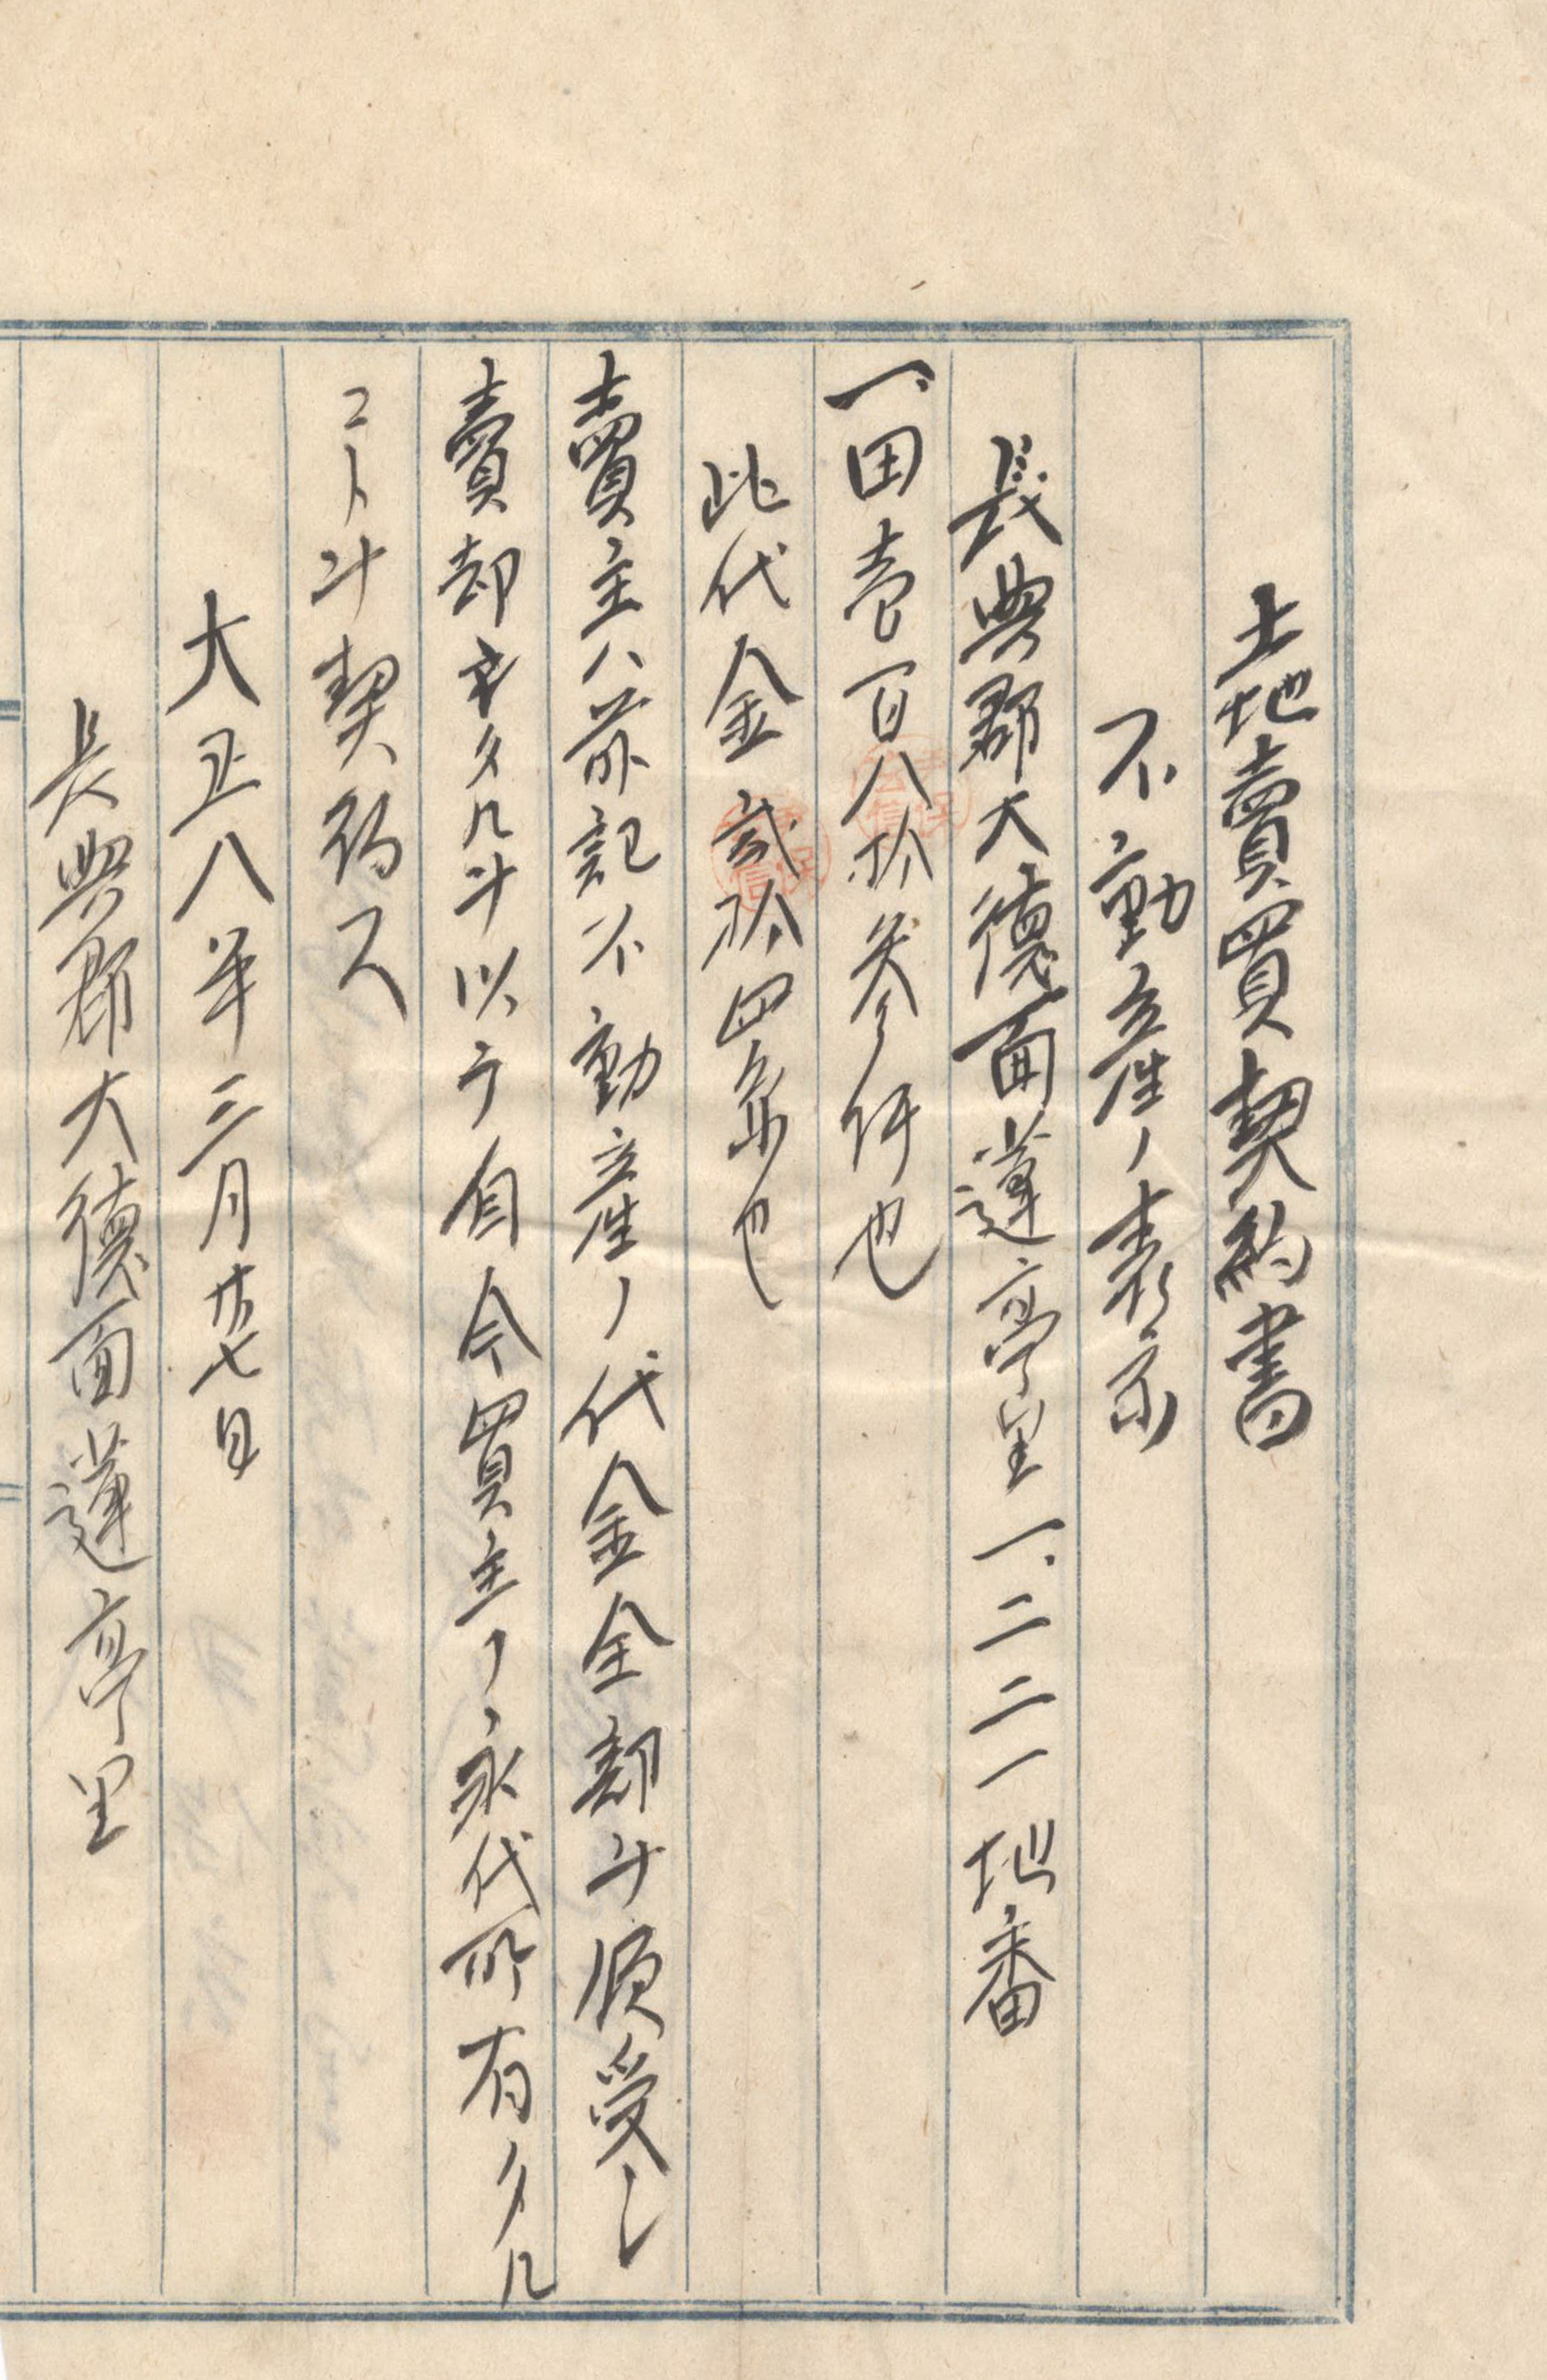 土地賣買契約書
不動産ノ表示
長興郡大德面蓮亭里一、二二一地番
一、田壱百八拾参坪也
此代金貳拾四円也
賣主ハ前記不動産ノ代金全部ヲ領受シ
賣却シタルヲ以テ自今買主ノ永代所有タル
コトヲ契約ス
大正八年三月廿七日
長興郡大德面蓮亭里